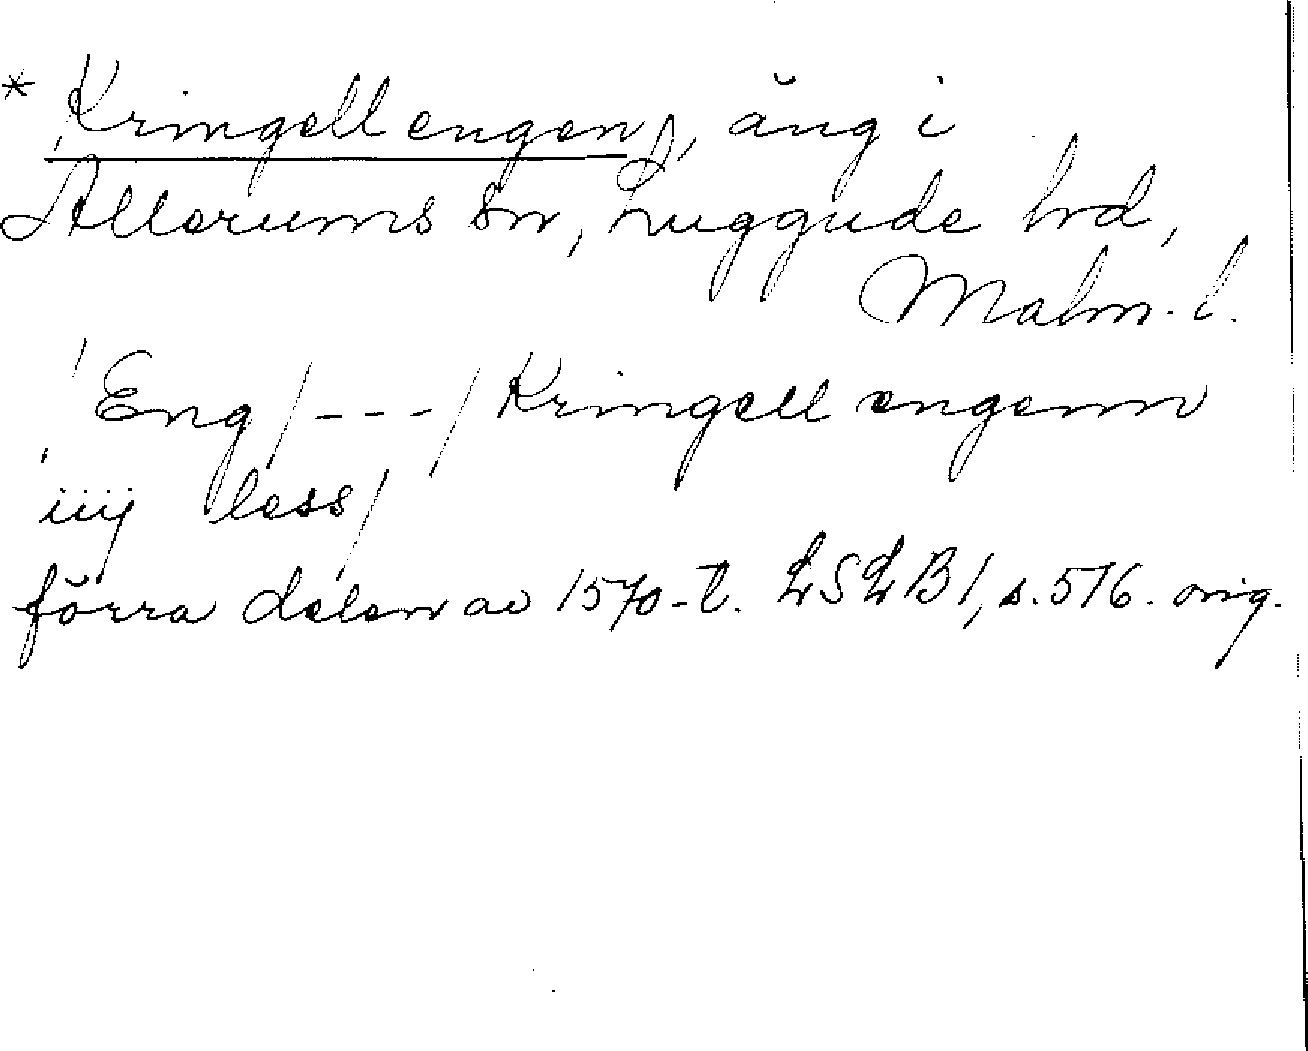 * Kringell engen, äng i
Allerums sn, Luggude hd,
Malm. l.
Eng /---/ Kringell engenn
iiij less/
förra delen av 1570-t. LSLB1, s. 576. orig.